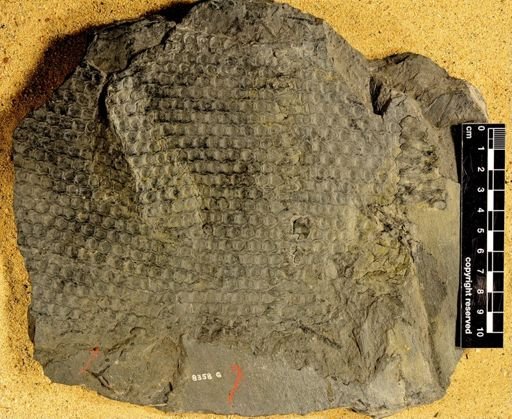 0
1
2
3
4
5
6
7
8
9
10
cm
copyright reserved
8358 G